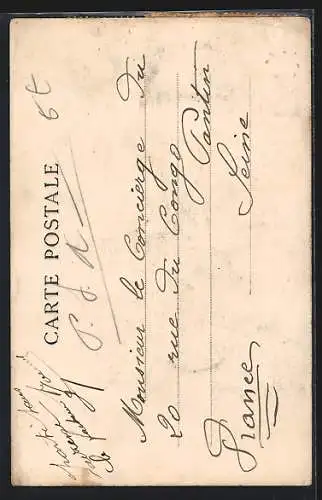 CARTE POSTALE
Monsieur le Concierge du
20 rue du Congo
Pantin
Seine
France